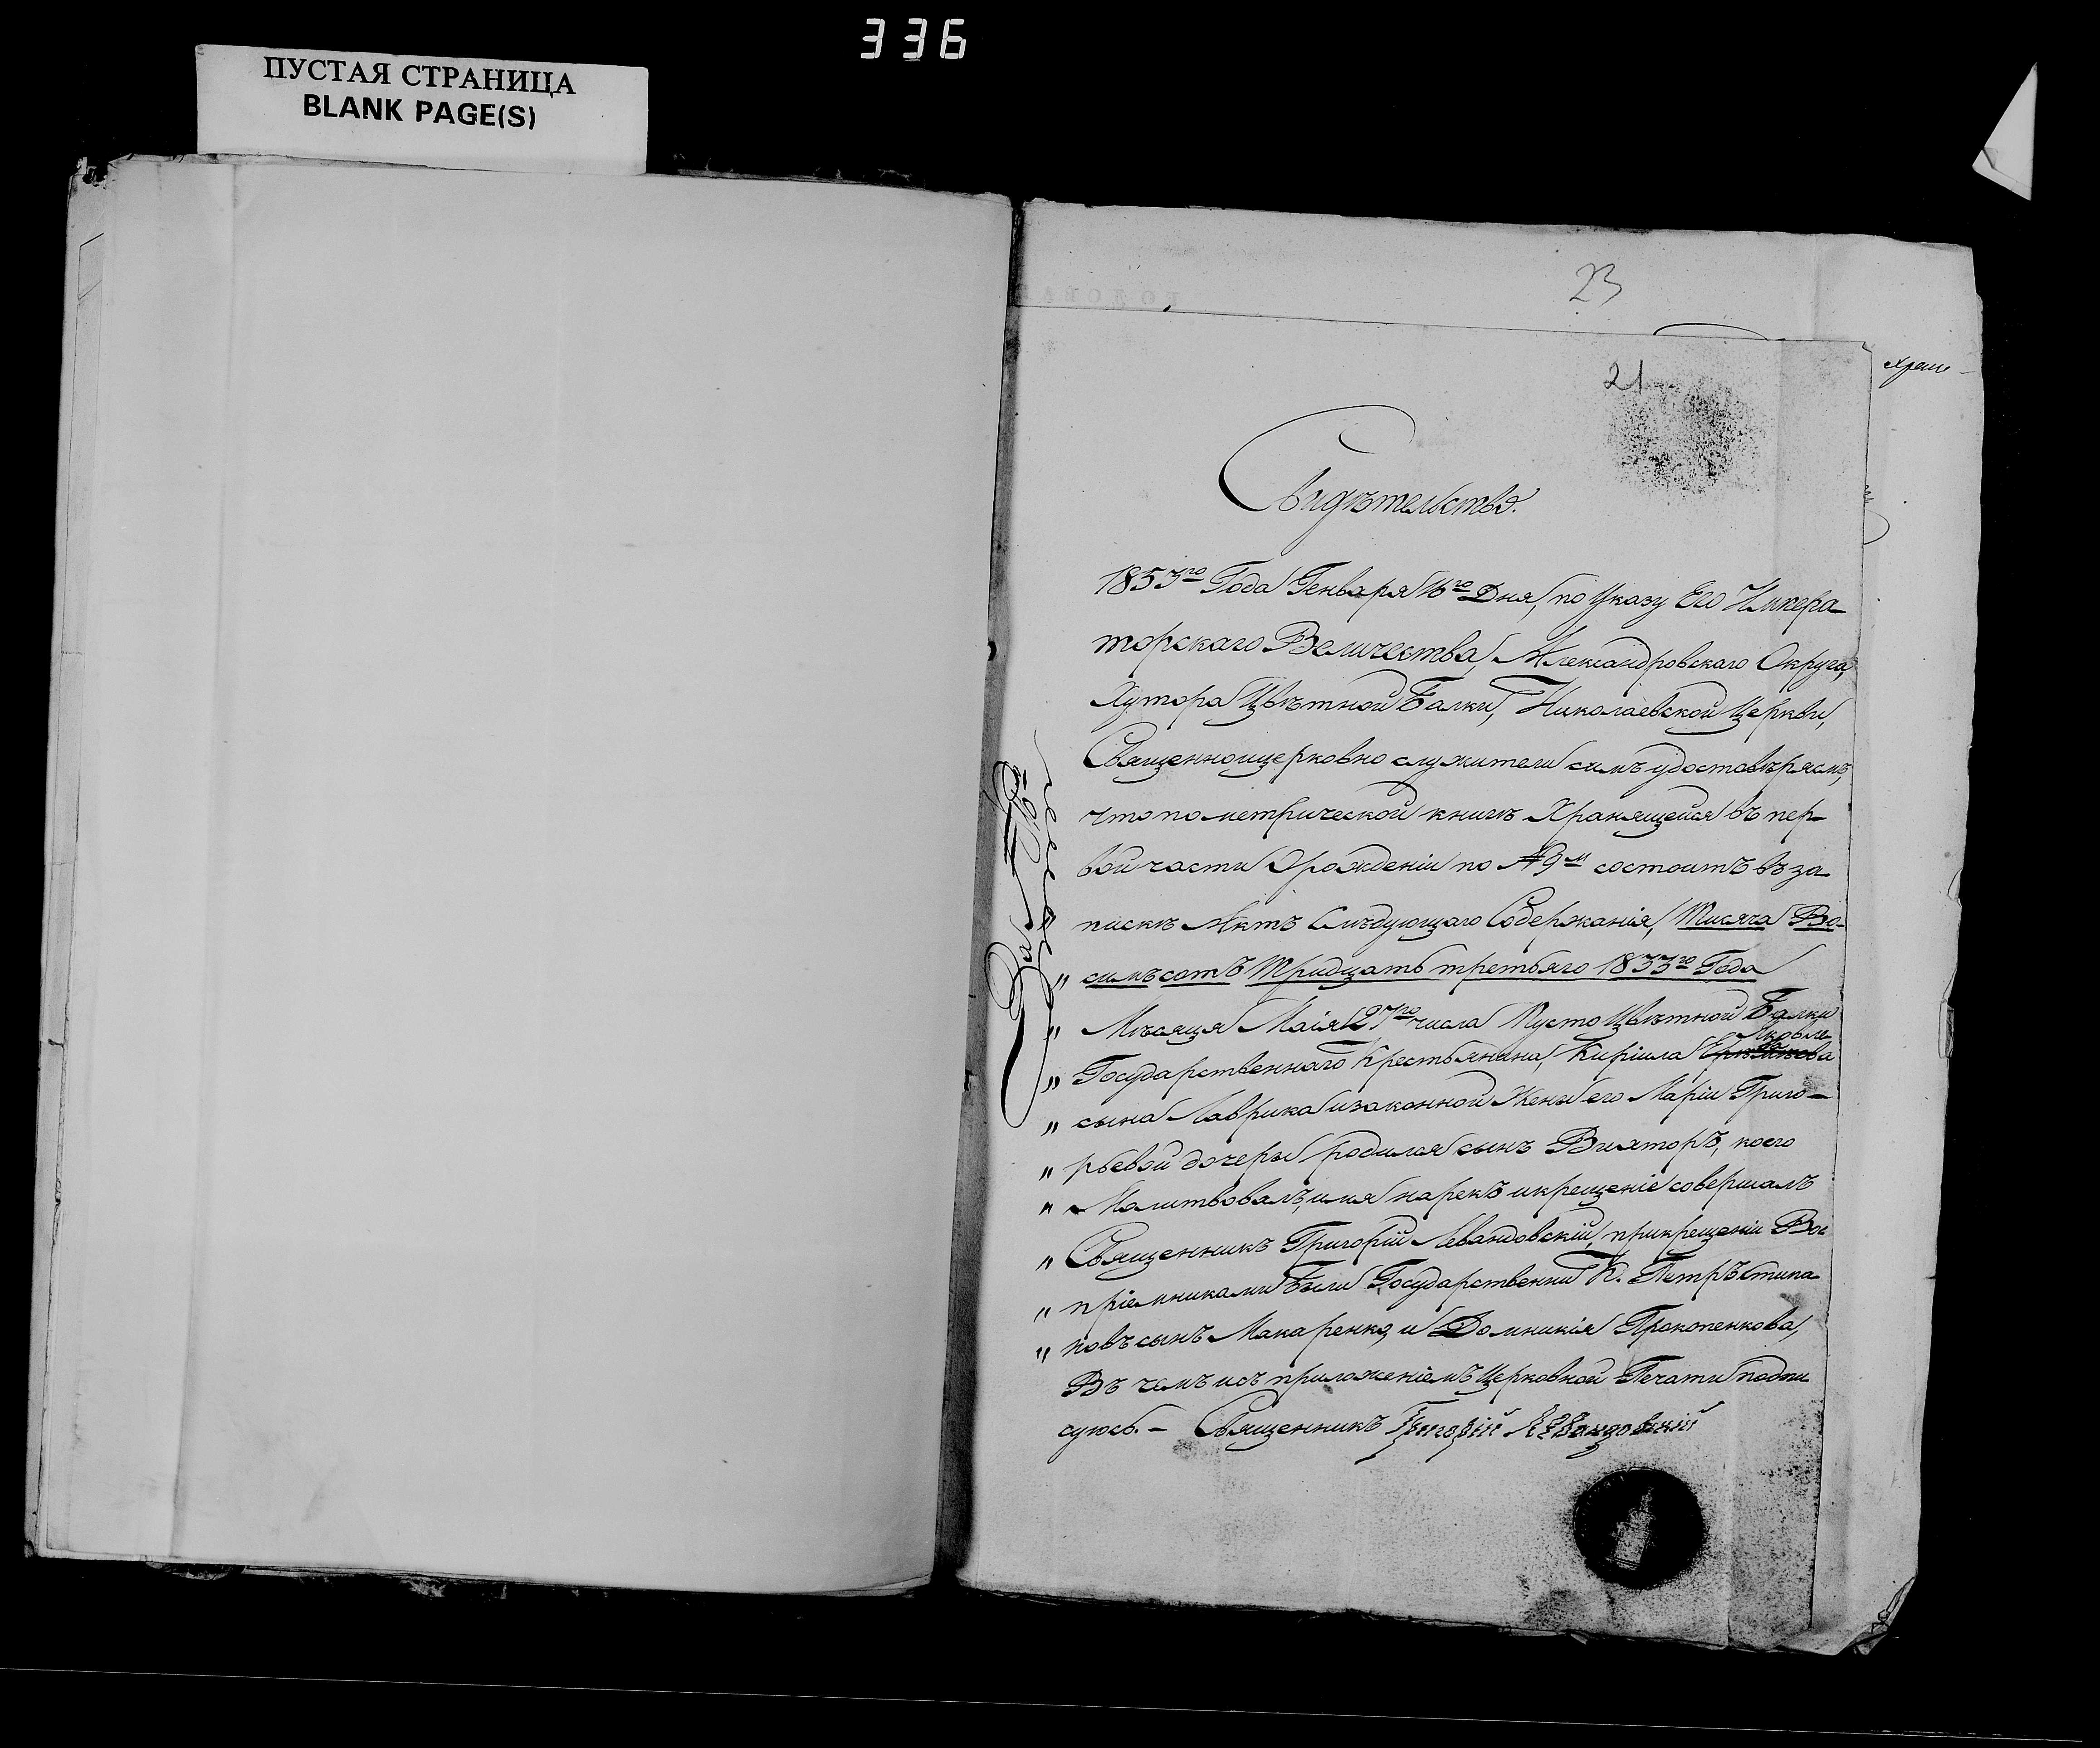 336
ПУСТАЯ СТРАНИЦА
BLANK PAGE(S)
23
21
Свидѣтельство.
1853го Года Генваря 16го Дня, по Указу Его Импера
торскаго Величества, Александровскаго Округа,
Хутора Цвѣтной Балки, Николаевской Церкви,
Священноицерковно служители симъ удостовѣряемъ,
что по метрической книгѣ Хранящейся въ пер-
вой части Орожденіи по №9м состоитъ въ за
пискѣ Актъ Слѣдующаго Содержанія, Тисяча Во-
„ симъсотъ Тридцать третьяго 1833го Года
„ Мѣсяця Маія 27го числа Пусто Цвѣтной Балки
Яковле
„ Государственнаго Крестьянина, Киріила
„ сына Лаврика изаконной Жены его Маріи Григо-
„ рьевой дочеры родился сынъ Викторъ, коего
„ Молитвовалъ, имя нарекъ икрещеніе совершалъ
„ Священникъ Григорій Левандовскій, прикрещеніи Вос
„ пріемниками были Государственни К. Петръ Стипа
„ новъ сынъ Макаренко, и Домникія Прокопенкова,
Въ чемъ исъ приложеніемъ Церковной Печати подпи
суюсь. – Священникъ Григорій Левандовскій